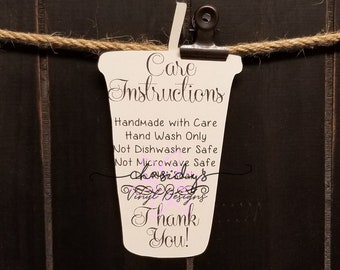 Care
Instructions
Handmade with Care
Hand Wash Only
Not Dishwasher Safe
Not Microwave Safe
Vinyl Designs
Thank
You!